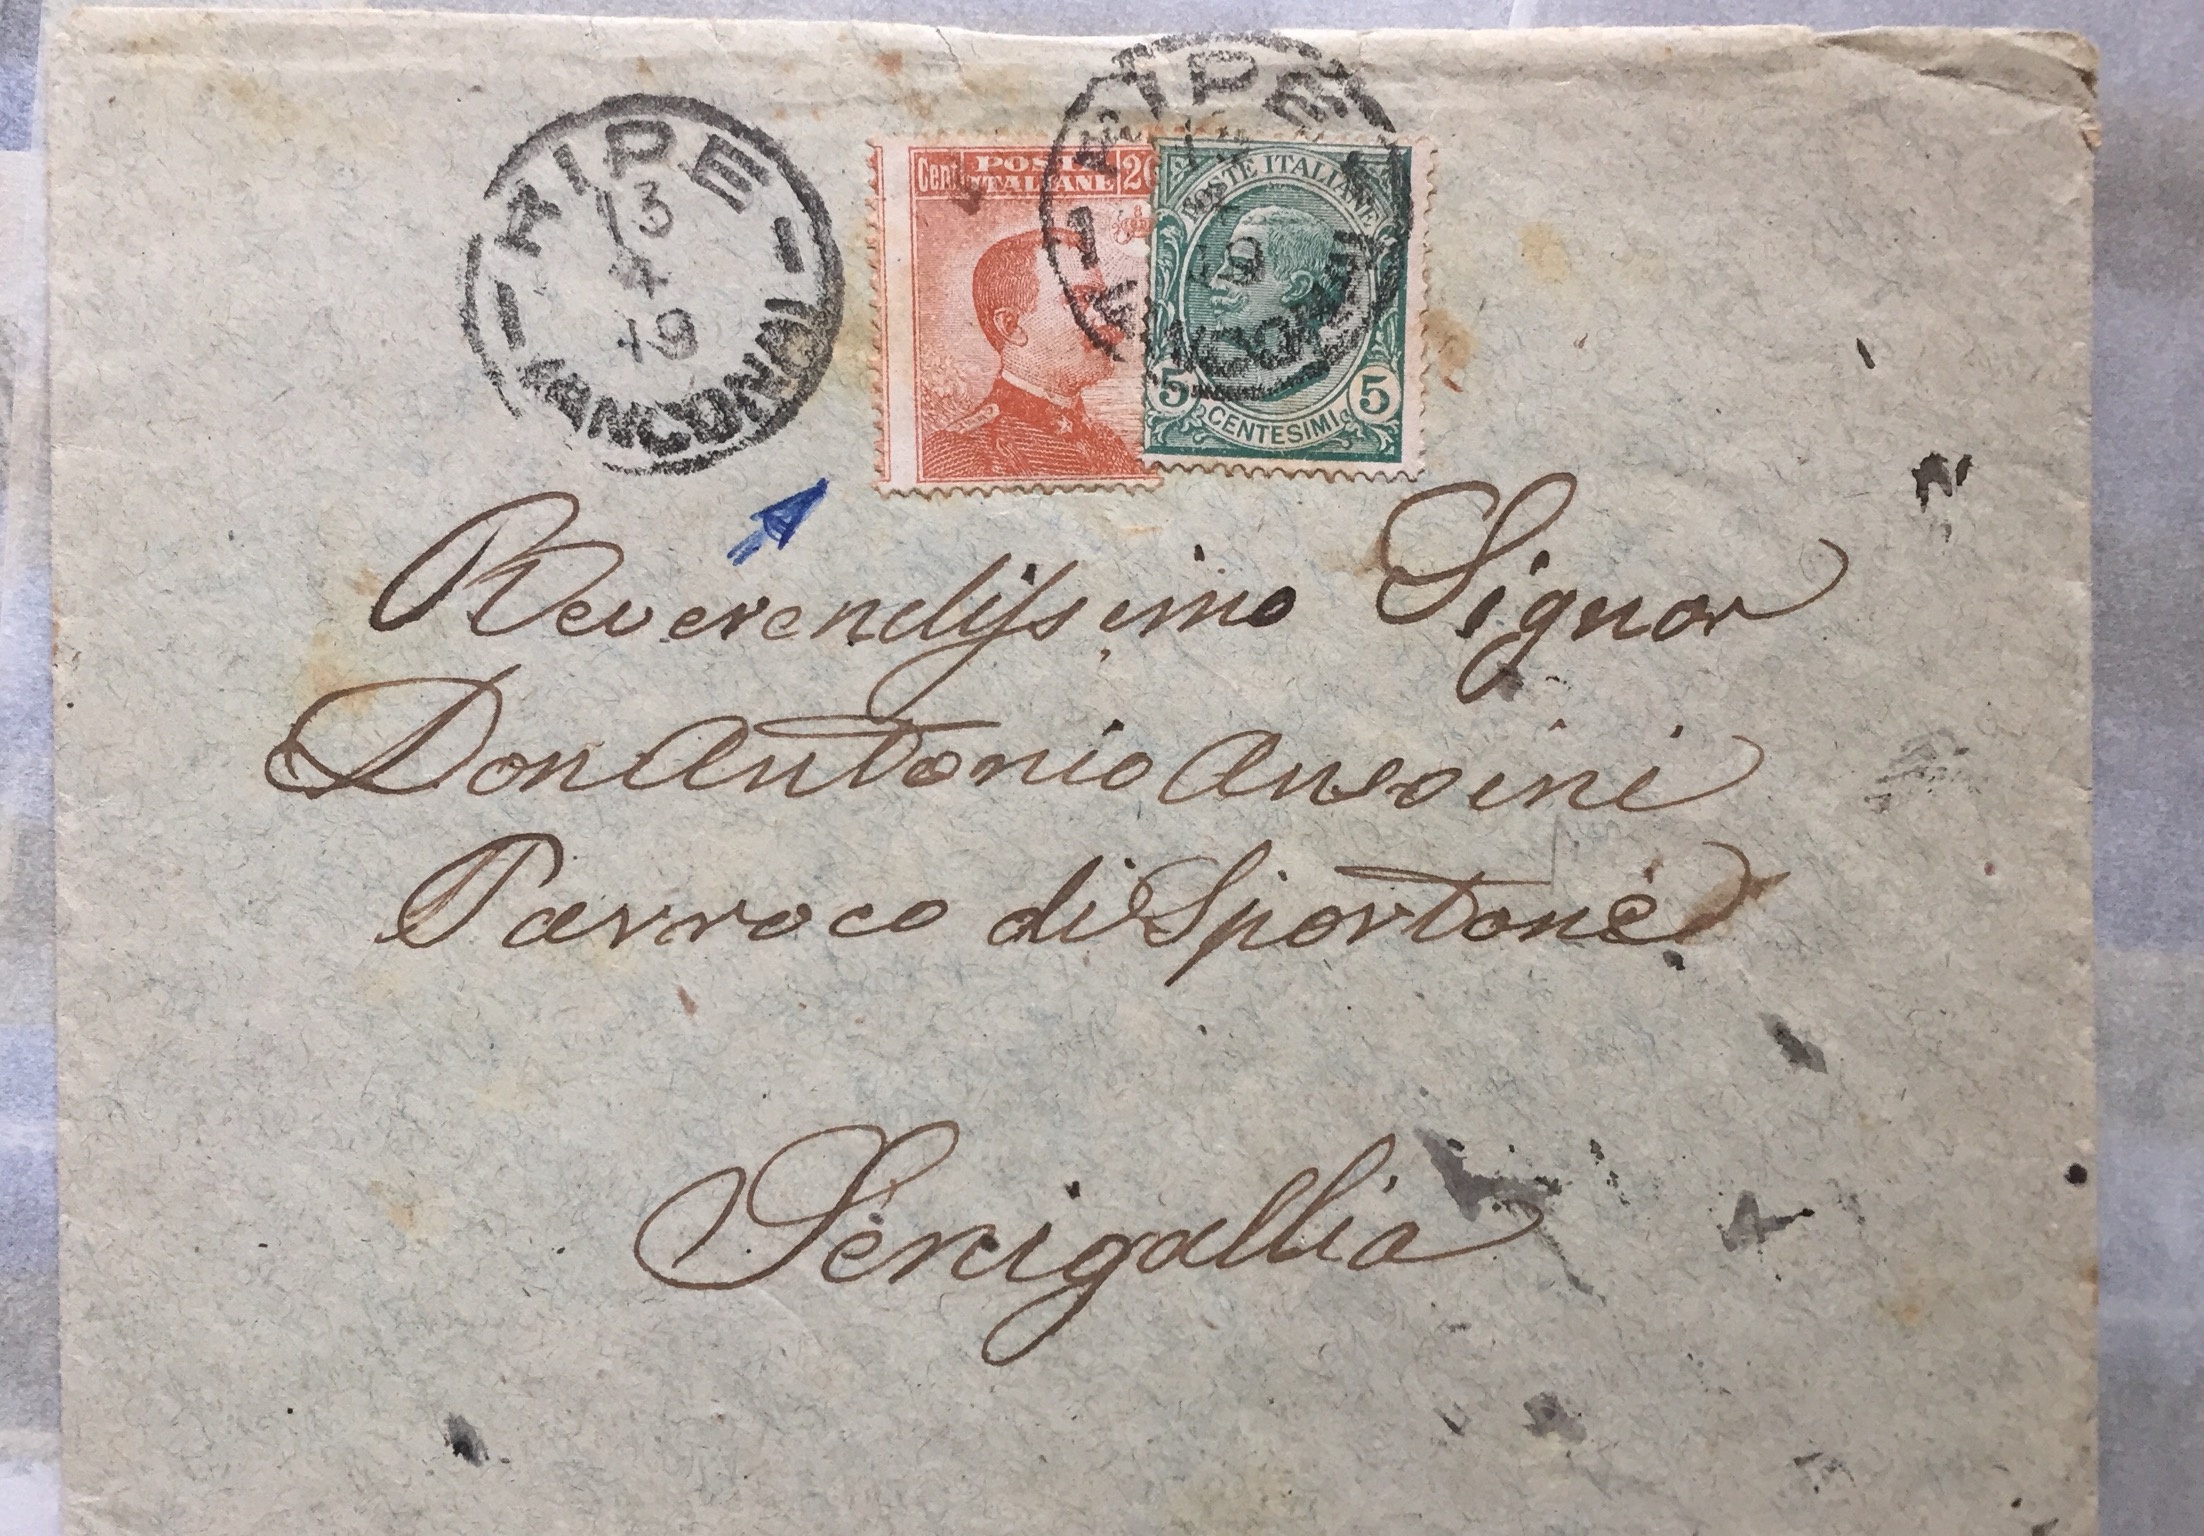 RIPE
13
4
19
(ANCONA)
Cent. POSTE 20
ITALIANE
RIPE
19
(ANCONA)
POSTE ITALIANE
5 5
CENTESIMI
Reverendissimo Signor
Don Antonio
Parroco di Sportone
Senigallia